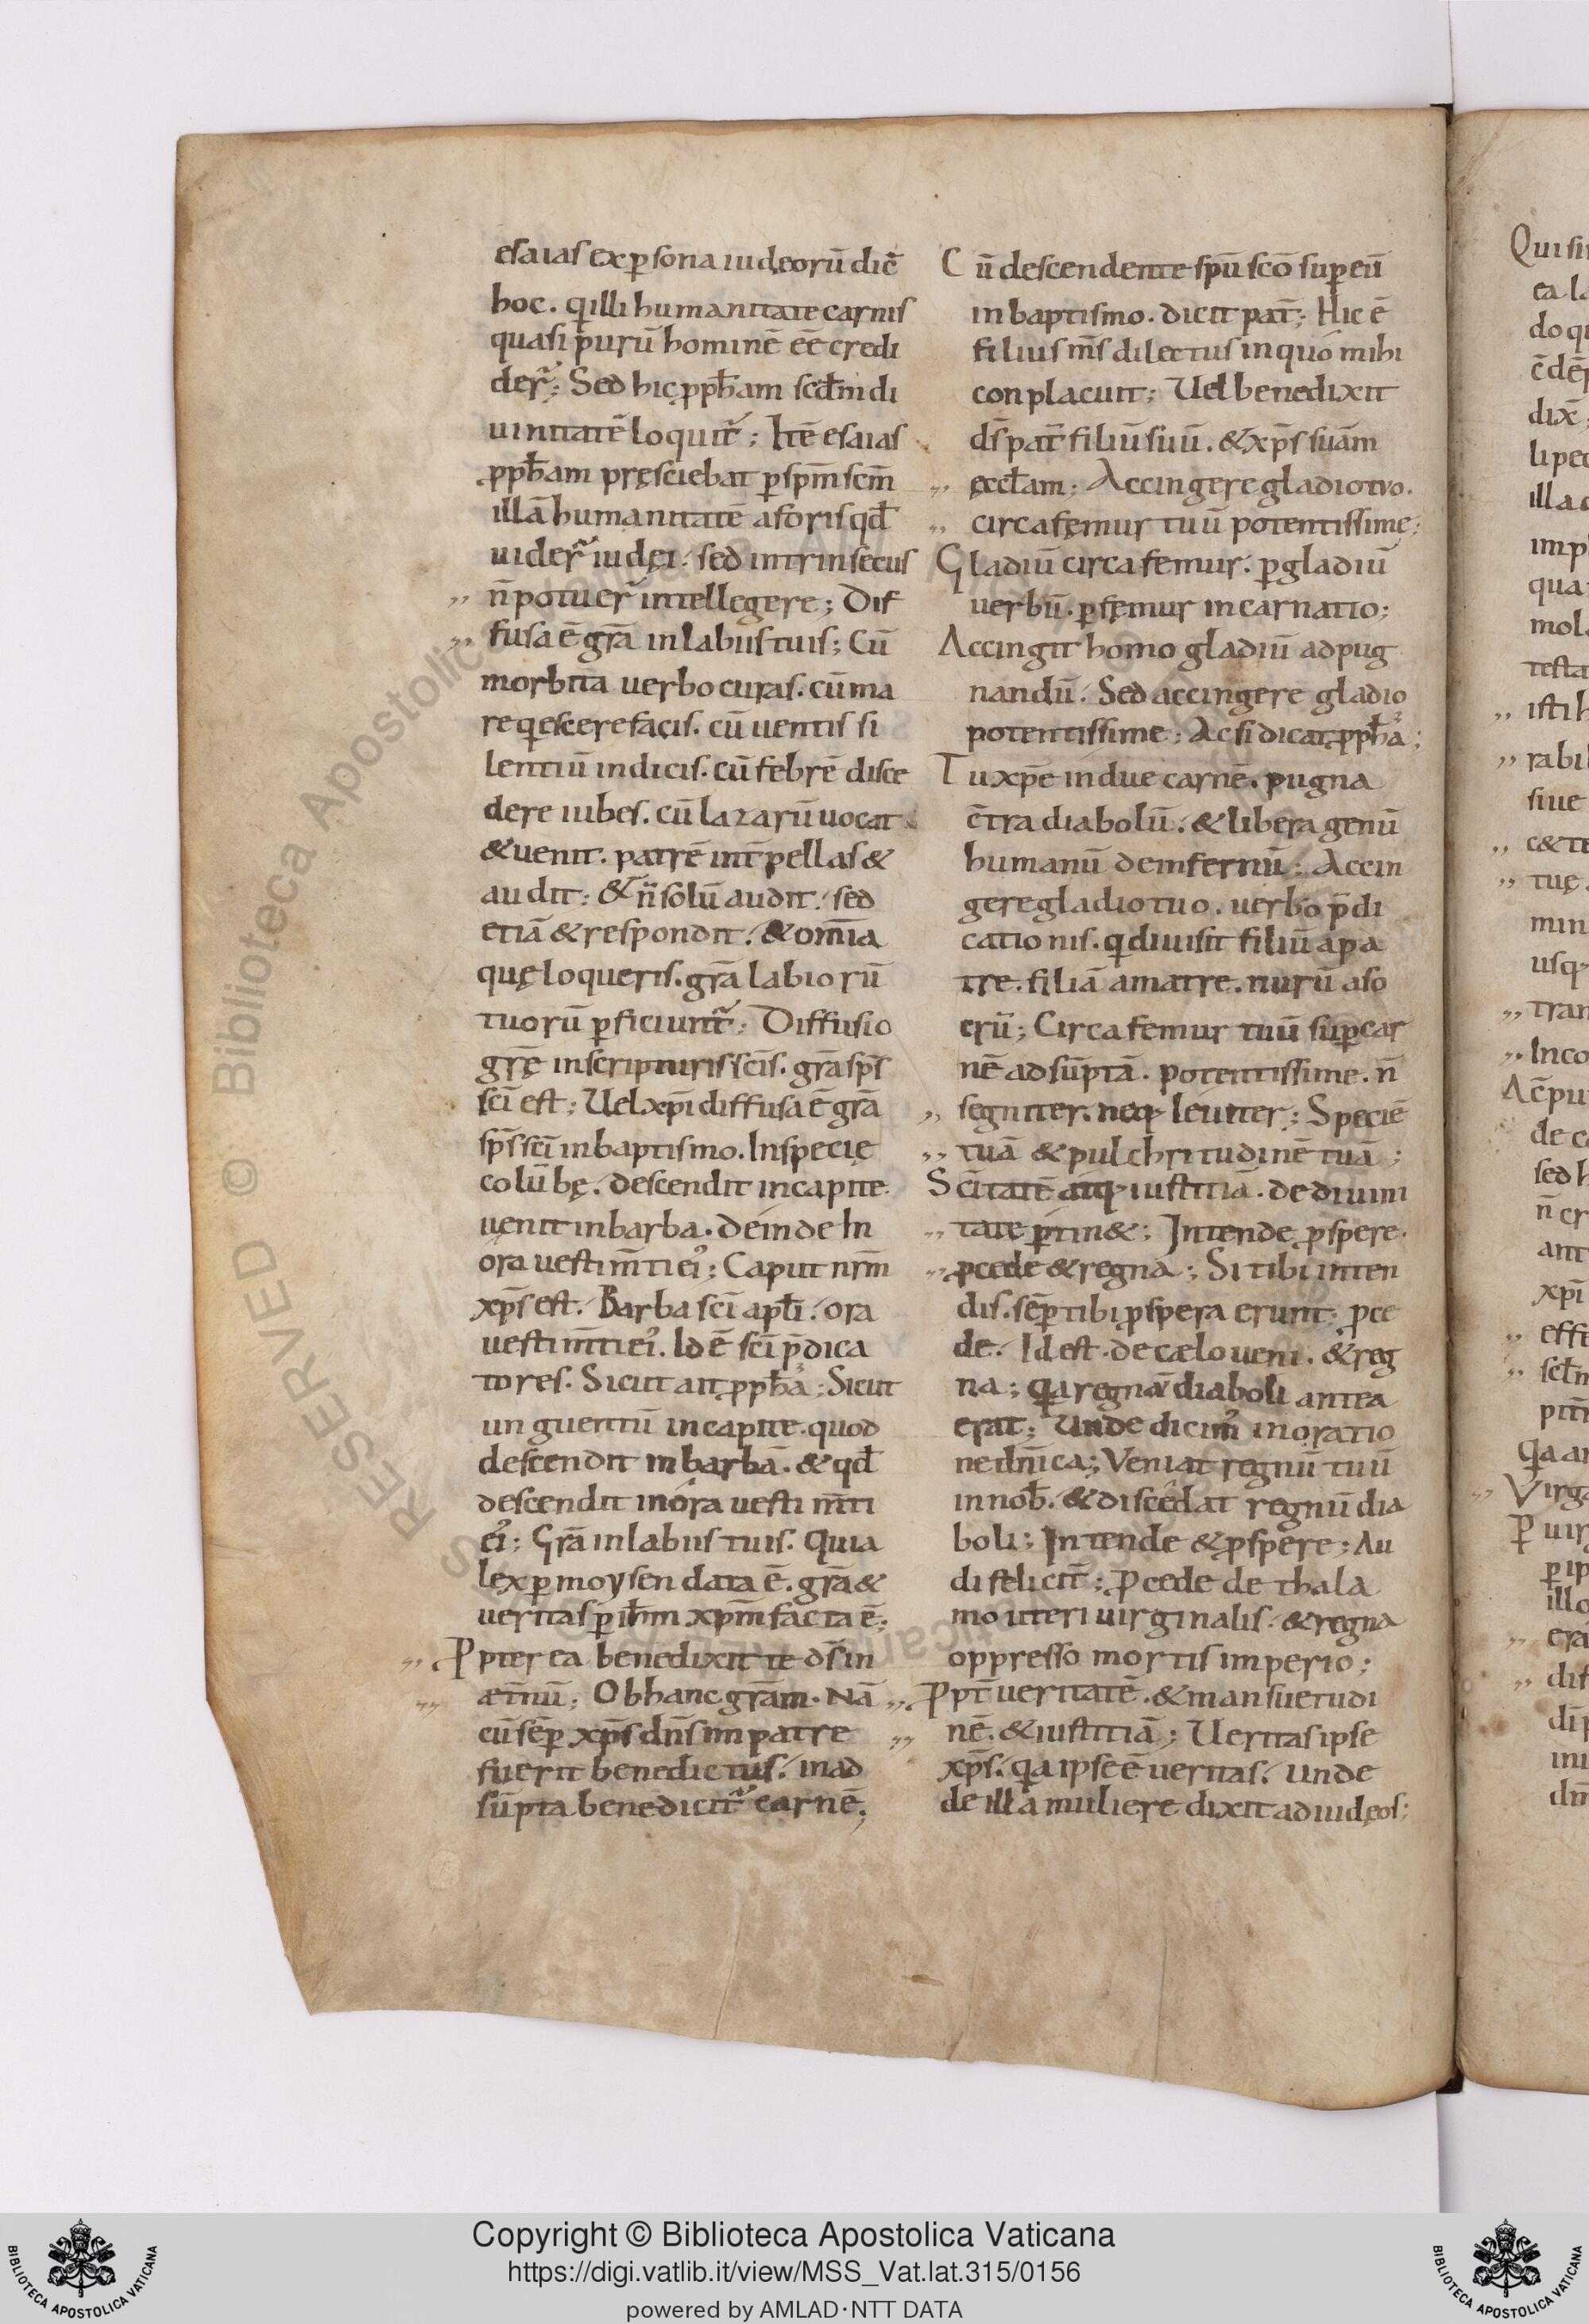 esaias ex p̱sona iudęorū dic̄
hoc. q̇ illi humanitate carnis
quasi purū hominē ēē credi
der̄; Sed hic ꝓph̄am scdm̄ di
uinitatē loquit̄; Itē esaias
ꝓph̄am pręsciebat ꝑ spm̄ scm̄
illā humanitatē aforis qd̄
uider̄ iudęi. sed intrinsecus
,, n̄ potuer̄ intellegere; Dif
,, fusa ē grā in labiis tuis; Cū
morbita uerbo curas. cū ma
re q̇escere facis. cū uentis si
lentiū indicis. cū febrē disce
dere iubes. cū lazarū uocat
& uenit. patrē int̄pellas &
audit; & n̄ solū audit. sed
etiā & respondit. & om̄ia
quę loqueris. grā labiorū
tuorū ꝑficiunt̄; Diffusio
grę̄ in scripturis scīs. grā sps̄
scī est; Uel xpī diffusa ē grā
sps̄ scī in baptismo. In specię
colūbę. descendit in capite.
uenit in barba. deinde In
ora uestim̄ti ei᾿; Caput nrm̄
xps̄ est. Barba scī apli̅. ora
uestim̄ti ei᾿. Id ē scī p̄dica
tores. Sicut ait ꝓph̄a; Sicut
unguentū in capite. quod
descendit in barbā. & qd̄
descendit in ora uestim̄ti
ei᾿; Grā in labiis tuis. Quia
lex ꝑ moysen data ē. grā &
ueritas ꝑ ihm̄ xpm̄ facta ē;
,, Ꝓpterea benedixit te ds̄ in
,, æt̄nū; Ob hanc grām. Nā
cū sēꝑ xps̄ dn̄s in patre
fuerit benedictus. in ad
sūpta benedicit̄ carnē;
Cū descendente spū scō suꝑ eū
in baptismo. dicit pat̄; Hic ē
filius ms̄ dilectus in quo mihi
conplacuit; Uel benedixit
ds̄ pat̄ filiū suū. & xps̄ suam
,, ęccl̄am; Accingere gladio tuo.
,, circa fęmur tuū potentissime;
Gladiū circa femur. ꝑ gladiū
uerbū. ꝑ fęmur incarnatio;
Accingit homo gladiū ad pug
nandū. Sed accingere gladio
potentissime; Ac si dicat ꝓph̄a;
Tu xpē indue carnē. pugna
c̄tra diabolū. & libera genū
humanū de infernū; Accin
gere gladio tuo. uerbo p̄di
cationis. q̇ diuisit filiū a pa
tre. filiā a matre. nurū a so
crū; Circa femur tuū suꝑ car
nē adsūptā. potentissime. n̄
,, segniter. neq; leuiter; Speciē
,, tuā & pulchritudinē tuā;
Scītatē atq; iustitiā. de diuini
,, tate ꝑtin&; Intende ꝓspere.
,, ꝓcede & regna; Si tibi inten
dis. sēꝑ tibi ꝓspera erunt; ꝓce
de. Id est. de cælo ueni. & reg
na; q̇a regnā diaboli antea
erat; Unde dicim᾿ in oratio
ne dn̄ica; Veniat regnū tuū
in nob̄. & discedat regnū dia
boli; Intende & ꝓspere; Au
di felicit̄; Ꝓcede de thala
mo uteri uirginalis. & regna
oppresso mortis imperio;
,, Ꝓpt̄ ueritatē. & mansuetudi
,, nē. & iustitiā; Ueritas ipse
xps̄. q̇a ipse ē ueritas. Unde
de illa muliere dixit ad iudęos;
Copyright © Biblioteca Apostolica Vaticana
https://digi.vatlib.it/view/MSS_Vat.lat.315/0156
powered by AMLAD·NTT DATA